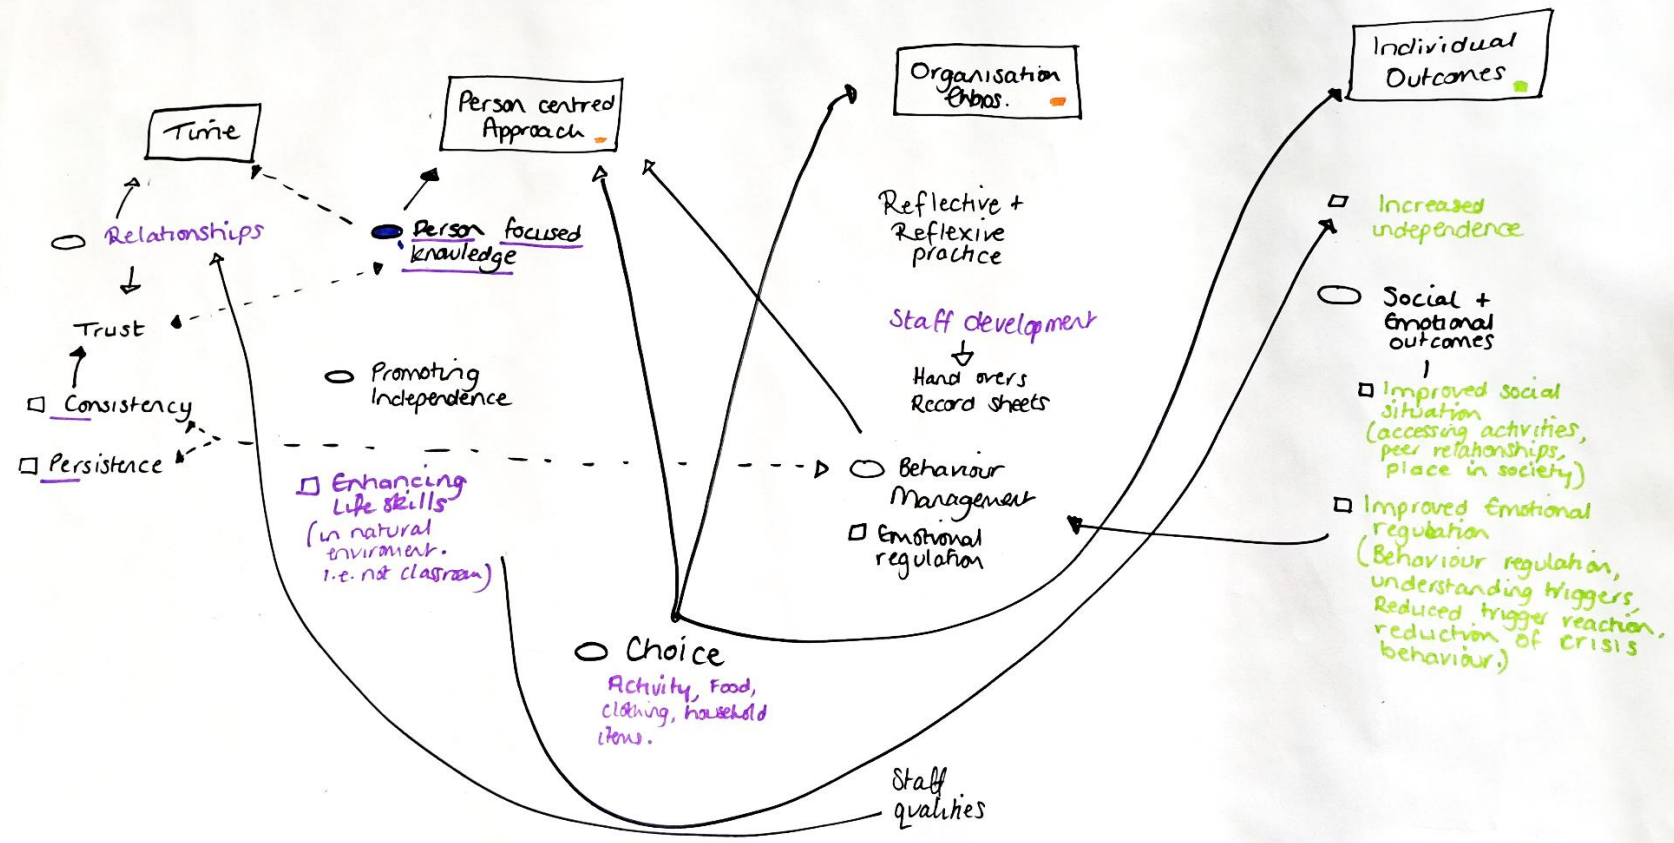 Time
Relationships
Trust
Consistency
Persistence
Person centred
Approach
Person focused
knowledge
Promoting
Independence
Enhancing
Life skills
(in natural
enviroment.
i.e. not classroom)
Choice
Activity, Food,
clothing, household
items.
Organisation
Ethos.
Reflective +
Reflexive
practice
Staff development
Hand overs
Record sheets
Behaviour
Management
Emotional
regulation
Staff
qualities
Individual
Outcomes
Increased
independence
Social +
Emotional
outcomes
Improved social
situation
(accessing activities,
peer relationships,
place in society)
Improved Emotional
regulation
(Behaviour regulation,
understanding triggers,
Reduced trigger reaction,
reduction of crisis
behaviour.)